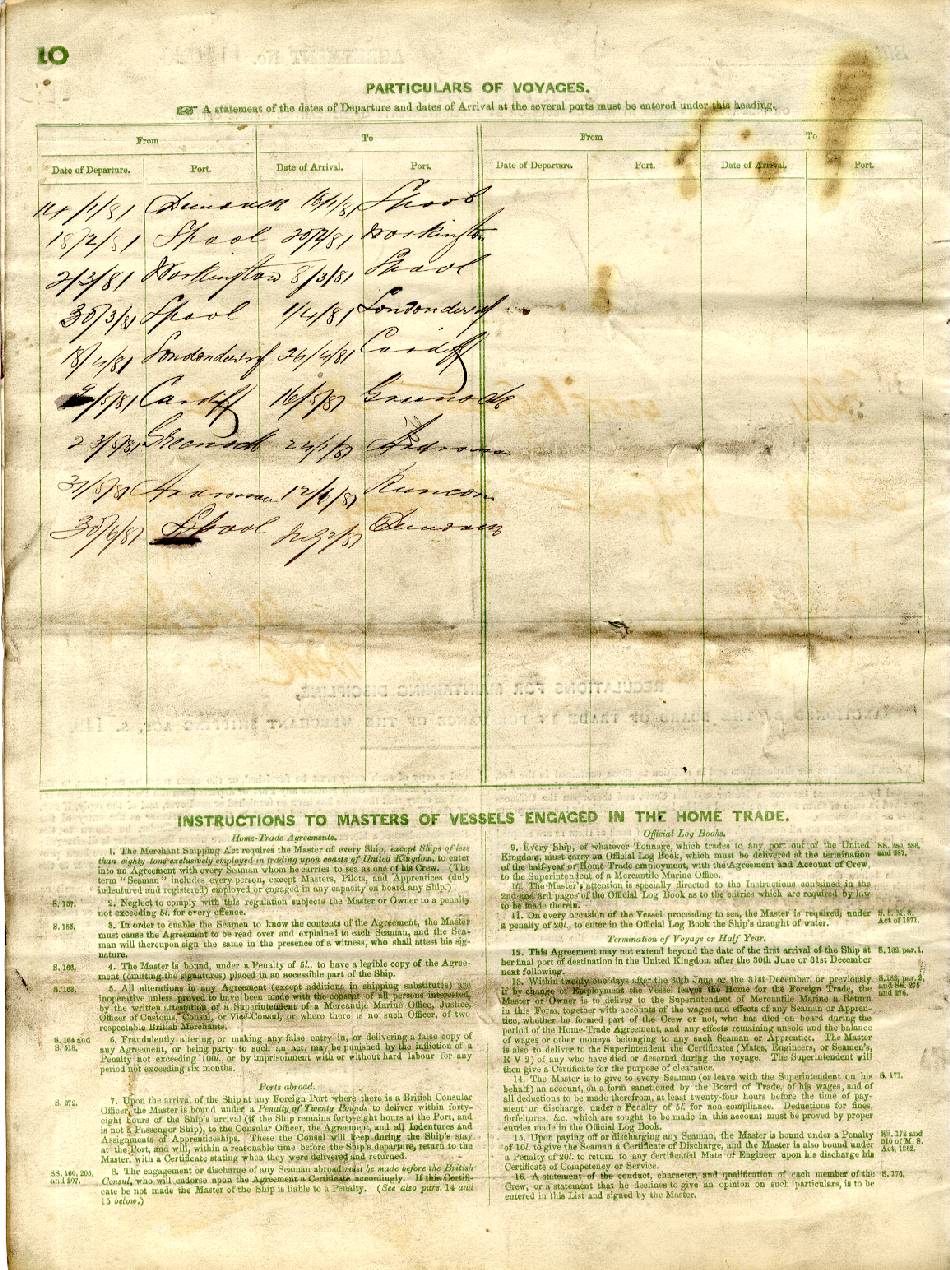 10
PARTICULARS OF VOYAGES.
☞ A statement of the dates of Departure and dates of Arrival at the several ports must be entered under this heading.
From To From To
Date of Departure. Port. Date of Arrival. Port. Date of Departure. Port. Date of Arrival. Port.
18/2/81 Lpool Workington
2/3/81 Workington 8/3/81 Lpool
30/3/81 Lpool 1/4/81 Londonderry
18/4/81 Londonderry 26/4/81 Cardiff
/5/81 Cardiff 16/5/81 Greenock
Greenock
12/6/81 Runcorn
30/6/81 Lpool
INSTRUCTIONS TO MASTERS OF VESSELS ENGAGED IN THE HOME TRADE.
Home-Trade Agreements.
1. The Merchant Shipping Act requires the Master of every Ship, except Ships of less
than eighty tons exclusively employed in trading upon coasts of United Kingdom, to enter
into an Agreement with every Seaman whom he carries to sea as one of his Crew. (The
term "Seaman" includes every person, except Masters, Pilots, and Apprentices (duly
indentured and registered) employed or engaged in any capacity on board any Ship.)
S. 157. 2. Neglect to comply with this regulation subjects the Master or Owner to a penalty
not exceeding 5l. for every offence.
S. 155. 3. In order to enable the Seamen to know the contents of the Agreement, the Master
must cause the Agreement to be read over and explained to each Seaman, and the Sea-
man will thereupon sign the same in the presence of a witness, who shall attest his sig-
nature.
S. 166. 4. The Master is bound, under a Penalty of 5l. to have a legible copy of the Agree-
ment (omitting the signatures) placed in an accessible part of the Ship.
S. 163. 5. All alterations in any Agreement (except additions in shipping substitutes) are
inoperative unless proved to have been made with the consent of all persons interested,
by the written attestation of a Superintendent of a Mercantile Marine Office, Justice,
Officer of Customs, Consul, or Vice-Consul, or where there is no such Officer, of two
respectable British Merchants.
6. Fraudulently altering, or making any false entry in, or delivering a false copy of
any Agreement, or being party to such an act, may be punished by the infliction of a
Penalty not exceeding 100l., or by imprisonment with or without hard labour for any
period not exceeding six months.
Ports abroad.
S. 272. 7. Upon the arrival of the Ship at any Foreign Port where there is a British Consular
Officer, the Master is bound under a Penalty of Twenty Pounds to deliver within forty-
eight hours of the Ship's arrival (if the Ship remains forty-eight hours at the Port, and
is not a Passenger Ship), to the Consular Officer, the Agreement, and all Indentures and
Assignments of Apprenticeships. These the Consul will keep during the Ship's stay
at the Port, and will, within a reasonable time before the Ship's departure, return to the
Master, with a Certificate stating when they were delivered and returned.
8. The engagement or discharge of any Seaman abroad must be made before the British
Consul, who will endorse upon the Agreement a Certificate accordingly. If this Certifi-
cate be not made the Master of the Ship is liable to a Penalty. (See also pars. 14 and
15 below.)
Official Log Books.
9. Every Ship, of whatever Tonnage, which trades to any port out of the United
Kingdom, must carry an Official Log Book, which must be delivered at the termination
of the half-year or Home Trade employment, with the Agreement and Account of Crew
to the Superintendent of a Mercantile Marine Office.
10. The Master's attention is specially directed to the Instructions contained in the
2nd and pages of the Official Log Book as to the entries which are required by law
to be made therein.
11. On every occasion of the Vessel proceeding to sea, the Master is required, under
a penalty of 20l., to enter in the Official Log Book the Ship's draught of water.
Termination of Voyage or Half Year.
12. This Agreement may not extend beyond the date of the first arrival of the Ship at
her final port of destination in the United Kingdom after the 30th June or 31st December
next following.
13. Within twenty-one days after the 30th June or the 31st December or previously
if by change of Employment the Vessel leaves the Home for the Foreign Trade, the
Master or Owner is to deliver to the Superintendent of Mercantile Marine a Return
in this Form, together with accounts of the wages and effects of any Seaman or Appren-
tice, whether he formed part of the Crew or not, who has died on board during the
period of the Home-Trade Agreement, and any effects remaining unsold and the balance
of wages or other moneys belonging to any such Seaman or Apprentice. The Master
is also to deliver to the Superintendent the Certificates (Mates, Engineers, or Seamen's,
R V 2) of any who have died or deserted during the voyage. The Superintendent will
then give a Certificate for the purpose of clearance.
14. The Master is to give to every Seaman (or leave with the Superintendent on his S. 171.
behalf) an account, on a form sanctioned by the Board of Trade, of his wages, and of
all deductions to be made therefrom, at least twenty-four hours before the time of pay-
ment or discharge, under a Penalty of 5l. for non compliance. Deductions for fines,
forfeitures, &c. which are sought to be made in this account must be proved by proper
entries made in the Official Log Book.
15. Upon paying off or discharging any Seaman, the Master is bound under a Penalty
of 10l. to give the Seaman a Certificate of Discharge, and the Master is also bound under
a Penalty of 20l. to return to any certificated Mate or Engineer upon his discharge his
Certificate of Competency or Service.
16. A statement of the conduct, character, and qualification of each member of the
Crew, or a statement that he declines to give an opinion on such particulars, is to be
entered in this List and signed by the Master.